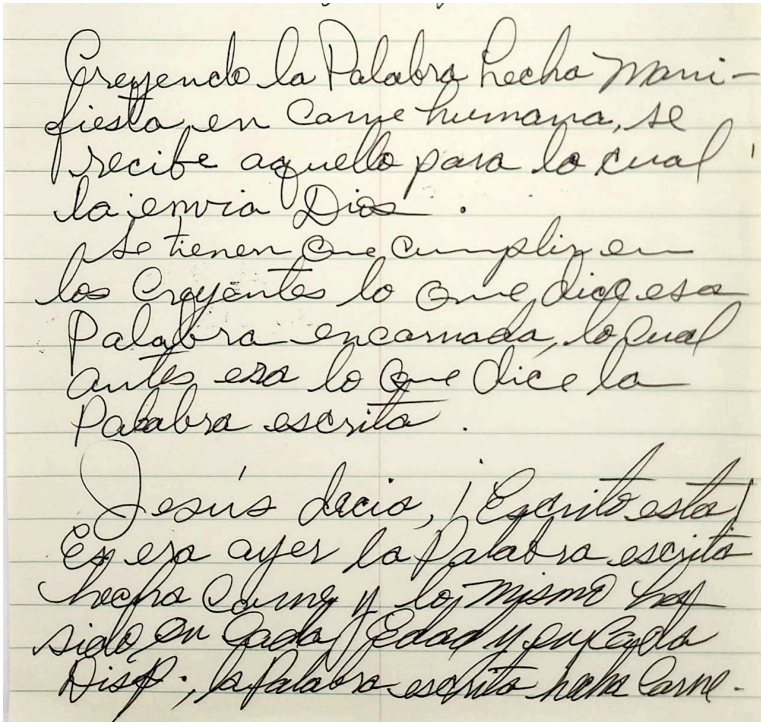 Creyendo la Palabra hecha mani-
fiesta en carne humana, se
recibe aquello para lo cual
la envia Dios.
Se tienen que cumplir en
los Creyentes lo que dice esa
Palabra encarnada, lo cual
antes era lo que dice la
Palabra escrita.
Jesús decia, ¡Escrito esta!
Es era ayer la Palabra escrita
hecha Carne y lo mismo ha
sido en Cada Edad y en Cada
Disp.; la Palabra escrita hecha Carne.